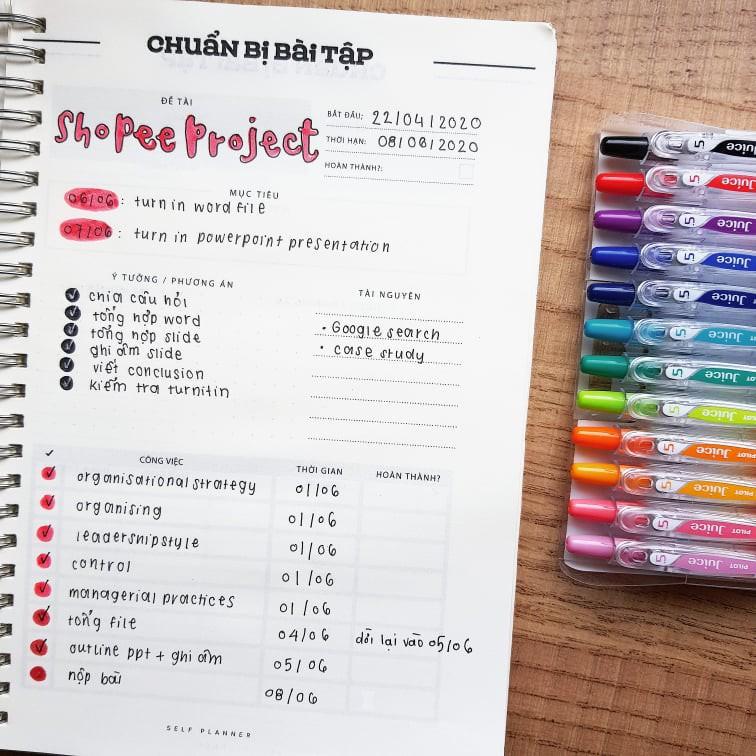 CHUẨN BỊ BÀI TẬP
ĐỀ TÀI
Shopee Project
BẮT ĐẦU: 22/04/2020
THỜI HẠN: 08/08/2020
HOÀN THÀNH?:
MỤC TIÊU
06/06: turn in word file
07/06: turn in powerpoint presentation
Ý TƯỞNG / PHƯƠNG ÁN
chia câu hỏi
tổng hợp word
tổng hợp slide
ghi âm slide
viết conclusion
kiểm tra turnitin
TÀI NGUYÊN
• Google search
• case study
✓ CÔNG VIỆC THỜI GIAN HOÀN THÀNH?
✓ organisational strategy 01/06
✓ organising 01/06
✓ leadership style 01/06
✓ control 01/06
✓ managerial practices 01/06
✓ tổng file 04/06 dời lại vào 05/06
✓ outline ppt + ghi âm 05/06
nộp bài 08/06
SELF PLANNER
5 Juice
5 Juice
5 Juice
5 Juice
5 Juice
PILOT Juice 5
PILOT Juice 5
PILOT Juice 5
PILOT Juice 5
PILOT Juice 5
PILOT Juice 5
PILOT Juice 5